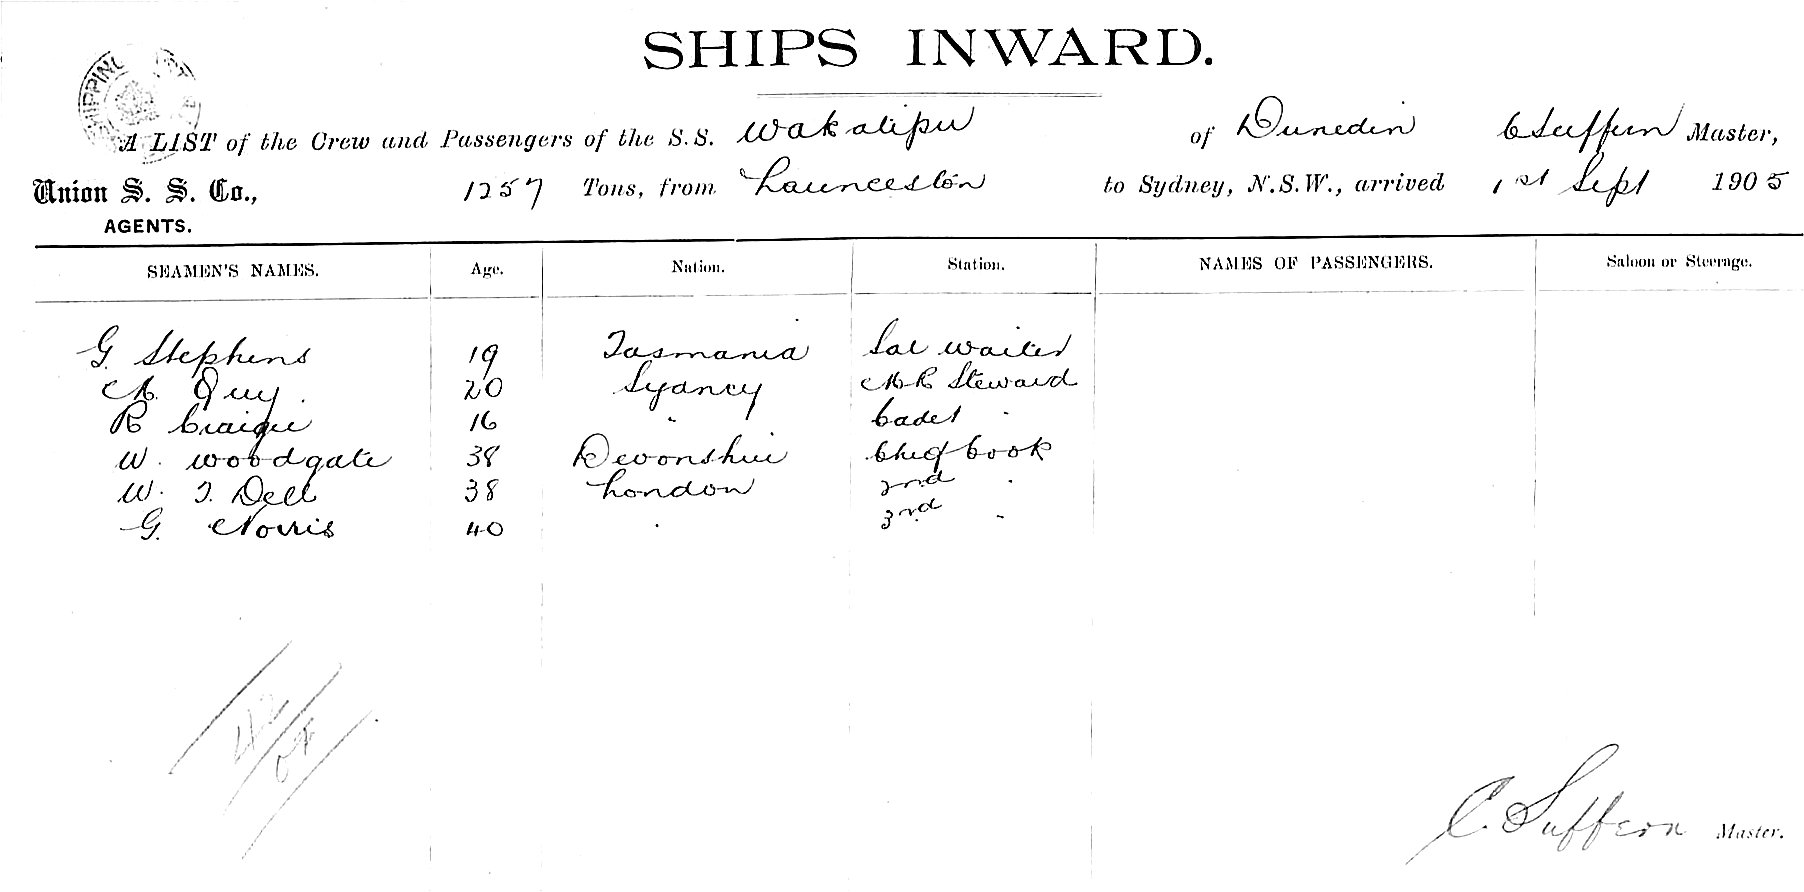 SHIPS INWARD.
SHIPPING
A LIST of the Crew and Passengers of the S.S. Wakatipu of Dunedin C Suffern Master,
Union S. S. Co., 1257 Tons, from Launceston to Sydney, N.S.W., arrived 1st Sept 1905
AGENTS.
SEAMEN'S NAMES. Age. Nation. Station. NAMES OF PASSENGERS. Saloon or Steerage.
G. Stephens 19 Tasmania Sal Waiter
Guy. 20 Sydney Steward
R Craigie 16 " Cadet
W. Woodgate 38 Devonshire Chief Cook
W. J. Dell 38 London 2nd "
G. Norris 40 " 3rd "
C. Suffern Master.